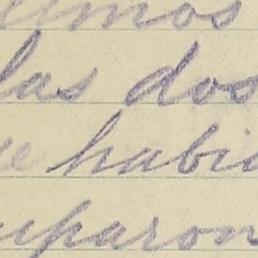 imos
las dos
habia
uparon